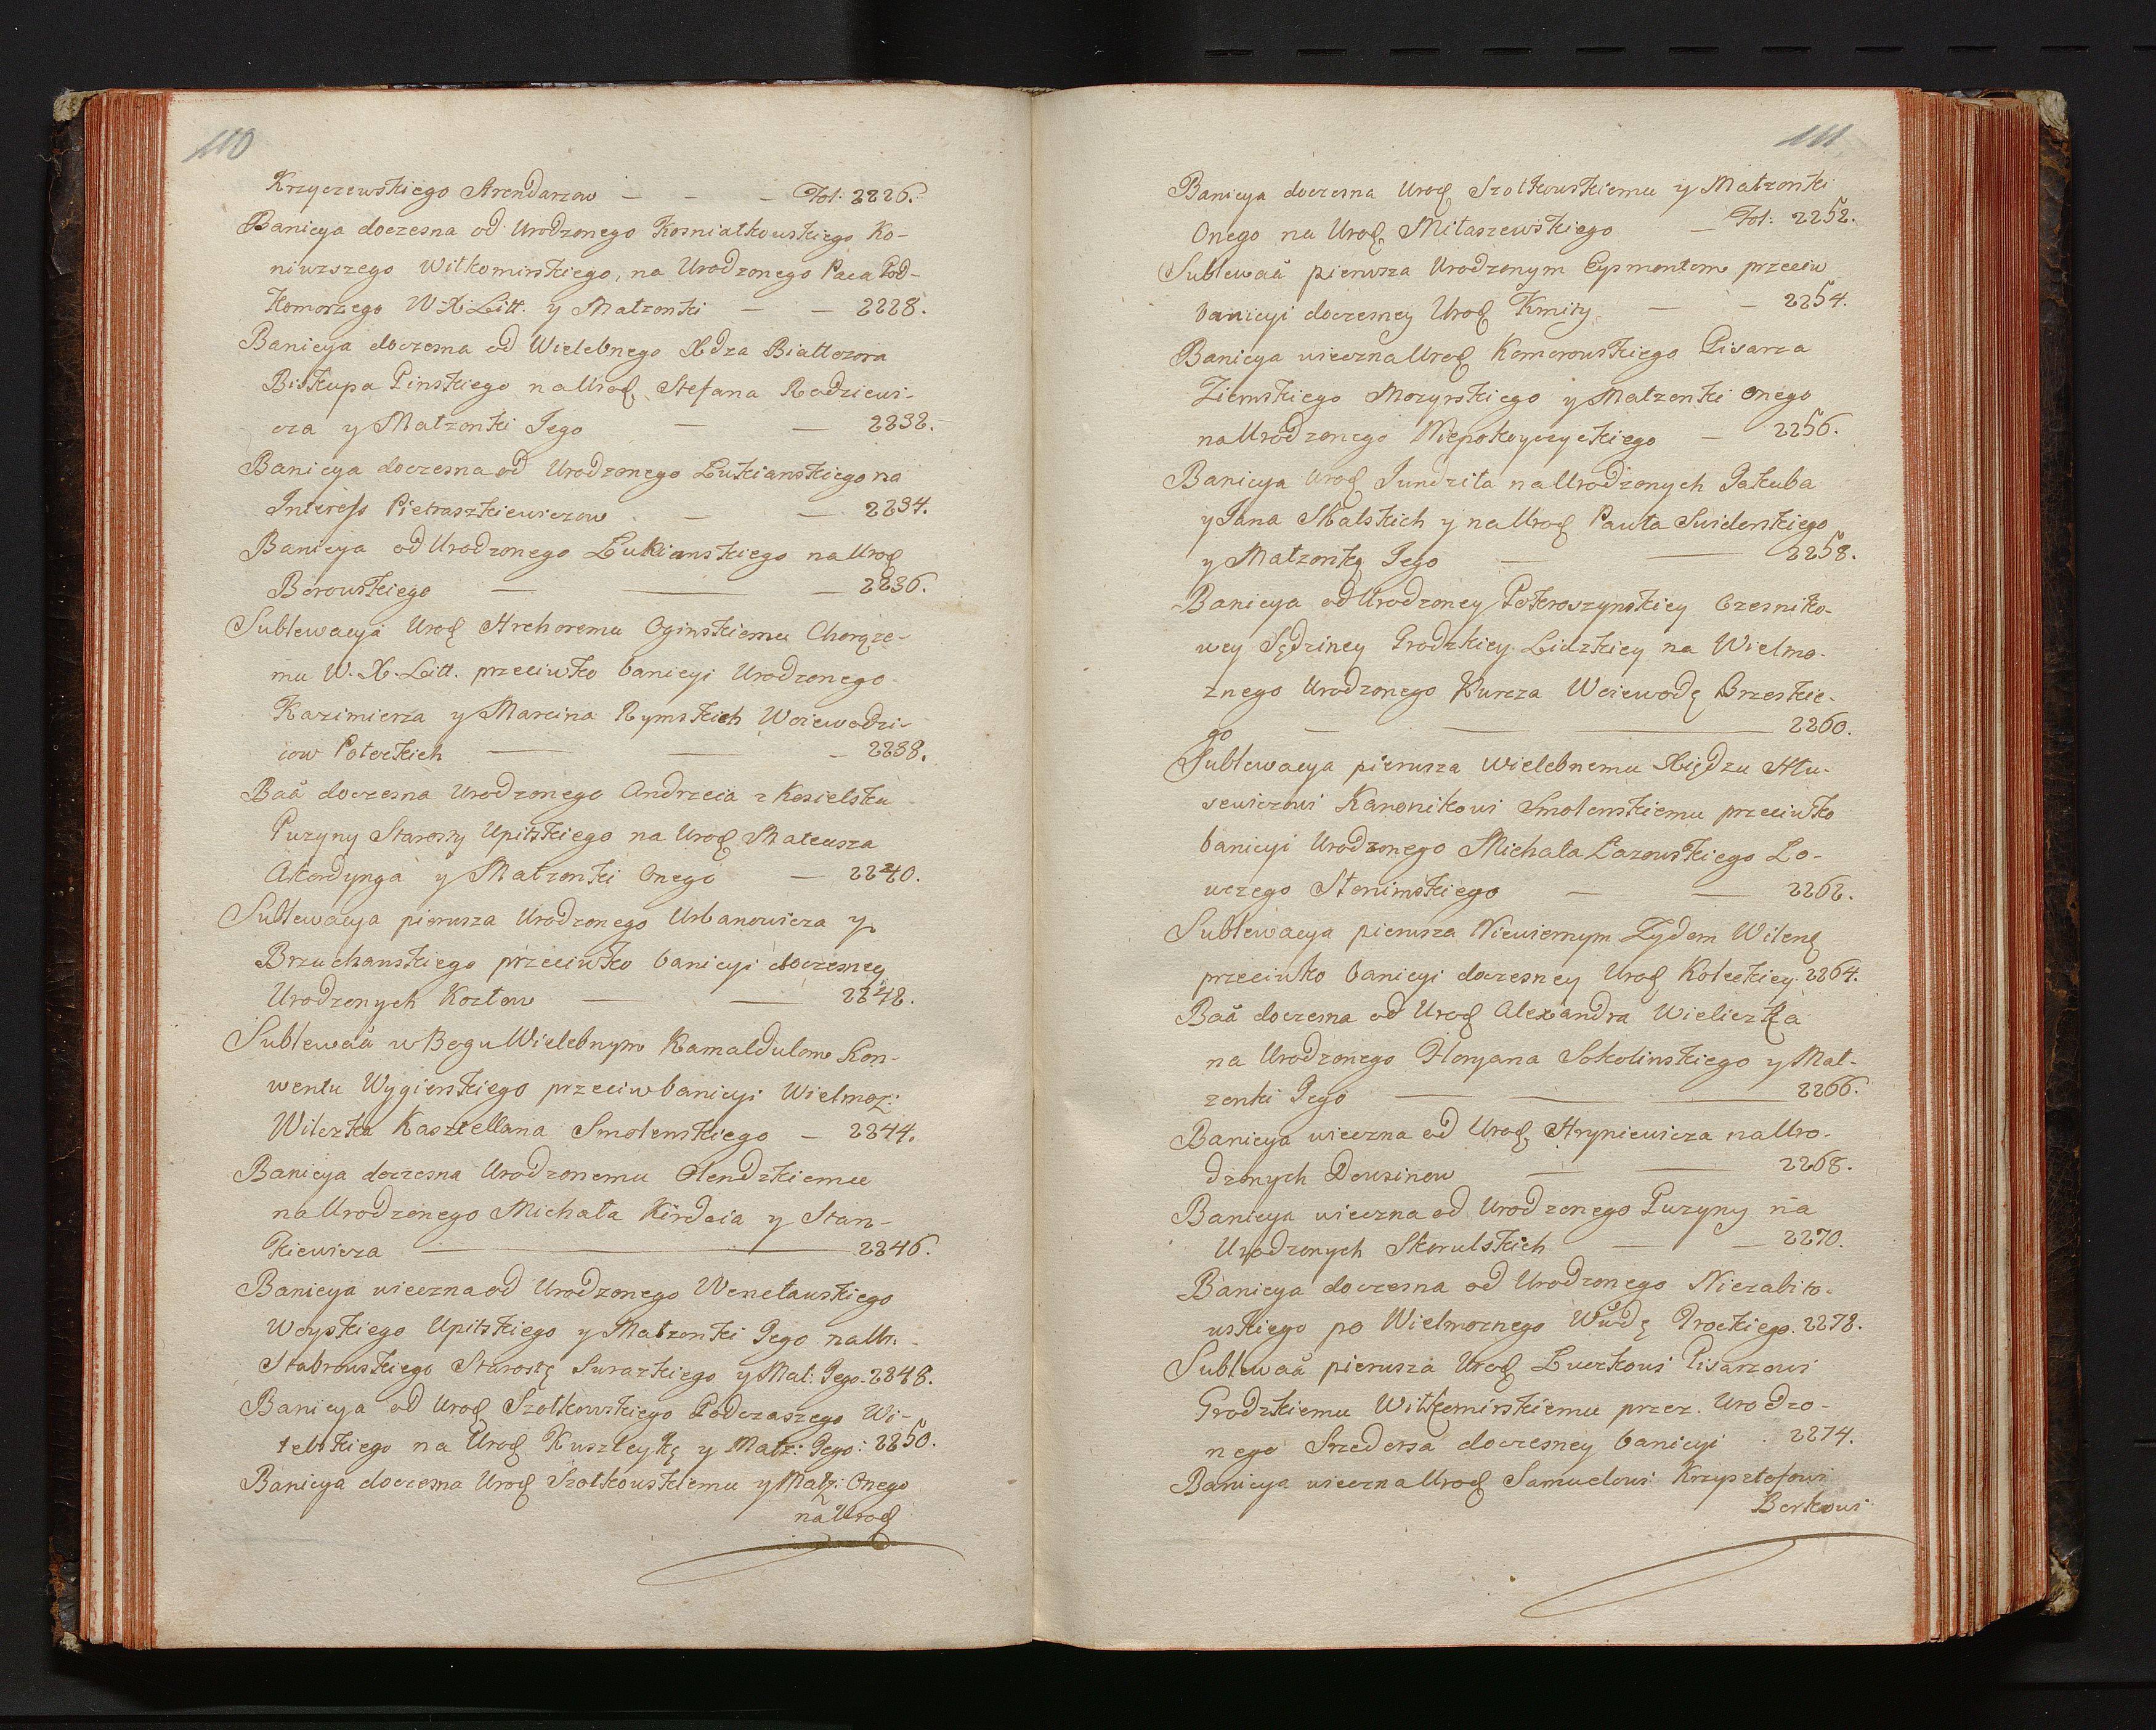 110
Krzyczewskiego Arendarzow — - - Fol: 2226.
Banicya doczesna od Urodzonego Kosniatkowskiego Ko-
niuszego Wiłkomirskiego, na Urodzonego Paca Pod-
komorzego W. X. Litt. y Małzonki — — 2228.
Banicya doczesna od Wielebnego Xdza Białłozora
Biskupa Pinskiego na Urod Stefana Radziewi-
cza y Małzonki Jego — — 2232.
Banicya doczesna od Urodzonego Łukianskiego na
Interess Pietraszkiewiczow — — 2234.
Banicya od Urodzonego Łukianskiego na Urod
Borowskiego — — — 2236.
Sublewacya Urod Hrehoremu Oginskiemu Chorąze-
mu W. X. Litt. przeciwko banicyi Urodzonego
Kazimierza y Marcina Rymskich Woiewodzi-
cow Połockich — — - 2238.
Baã doczesna Urodzonego Andrzeia z Kosielska
Puzyny Starosty Upitskiego na Urod Mateusza
Akordynga y Małzonki Onego — 2240.
Sublewacya pierwsza Urodzonego Urbanowicza y
Brzuchanskiego przeciwko banicyi doczesney
Urodzonych Kozłow — — 2242.
Sublewaã w Bogu Wielebnym Kamaldulom Kon-
wentu Wygierskiego przeciw banicyi Wielmoz:
Wilczka Kasztellana Smolenskiego — 2244.
Banicya doczesna Urodzonemu Olendzkiemu
na Urodzonego Michała Kirdeia y Stan-
kiewicza — 2246.
Banicya wieczna od Urodzonego Wencławskiego
Woyskiego Upitskiego y Małzonki Jego na Ur.
Stabrowskiego Starostę Surazkiego y Mał: Jego. 2248.
Banicya od Urod Szołkowskiego Podczaszego Wi-
tebskiego na Urod Kuszleykę y Małz: Jego: 2250.
Banicya doczesna Urod Szołkowskiemu y Małz: Onego
na Urod
111
Banicya doczesna Urod Szołkowskiemu y Małzonki
Onego na Urod Miłaszewskiego — Fol: 2252.
Sublewaã pierwsza Urodzonym Eysmontom przeciw
banicyi doczesney Urod Kmity. — — 2254.
Banicya wieczna Urod Komorowskiego Pisarza
Ziemskiego Mozyrskiego y Małzonki onego
na Urodzonego Niepokoyczyckiego — 2256.
Banicya Urod Jundziła na Urodzonych Jakuba
y Jana Skalskich y na Urod Pawła Swiderskiego
y Małzonkę Jego — — 2258.
Banicya od Urodzoney Pokroszynskiey Czesniko-
wey Sędziney Grodzkiey Lidzkiey na Wielmo-
znego Urodzonego Kurcza Woiewodę Brzeskie-
go — — — 2260.
Sublewacya pierwsza Wielebnemu Xiędzu Hłu-
sewiczowi Kanonikowi Smolenskiemu przeciwko
banicyi Urodzonego Michała Łazowskiego Ło-
wczego Słonimskiego — — 2262.
Sublewacya pierwsza Niewiernym Zydom Wilenṡ
przeciwko banicyi doczesney Urod Koleckiey. 2264.
Baã doczesna od Urod Alexandra Wieliczka
na Urodzonego Floryana Sokolinskiego y Mał-
zonki Jego — — — 2266.
Banicya wieczna od Urod Hryniewicza na Uro-
dzonych Dowsinow — — 2268.
Banicya wieczna od Urodzonego Puzyny na
Urodzonych Skorulskich — — 2270.
Banicya doczesna od Urodzonego Niezabito-
wskiego po Wielmoznego Wwdę Trockiego. 2272.
Sublewaã pierwsza Urod Łuczkowi Pisarzowi
Grodzkiemu Wiłkomirskiemu przez. Urodzo-
nego Szedersa doczesney banicyi . 2274.
Banicya wieczna Urod Samuelowi Krzysztofowi
Berkowi